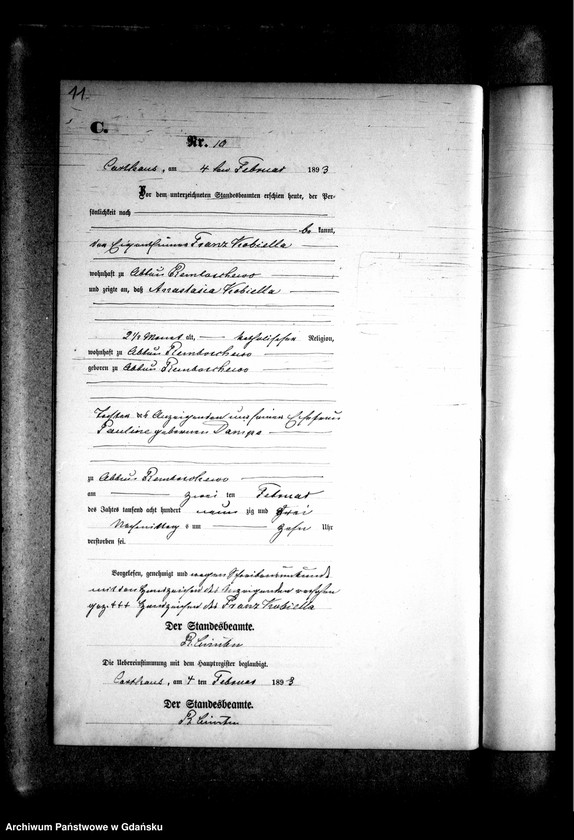 11.
C.
Nr. 10
Carthaus, am 4 ten Februar 1893
Vor dem unterzeichneten Standesbeamten erschien heute, der Per-
sönlichkeit nach
be kannt,
der Eigenthümer Franz Kobiella
wohnhaft zu Abbau Remboschewo
und zeigte an, daß Anastasia Kobiella
2½ Monat alt, katholischer Religion,
wohnhaft zu Abbau Remboschewo
geboren zu Abbau Remboschewo
Tochter des Anzeigenden und seiner Ehefrau
Pauline geborenen Dampa
zu Abbau Remboschewo
am zwei ten Februar
des Jahres tausend acht hundert neun zig und drei
Nachmittag s um zehn Uhr
verstorben sei.
Vorgelesen, genehmigt und wegen Schreibensunkunde
mit dem Handzeichen des Anzeigenden versehen
gez. +++ Handzeichen des Franz Kobiella
Der Standesbeamte.
Die Uebereinstimmung mit dem Hauptregister beglaubigt.
Carthaus, am 4 ten Februar 1893
Der Standesbeamte.
Archiwum Państwowe w Gdańsku